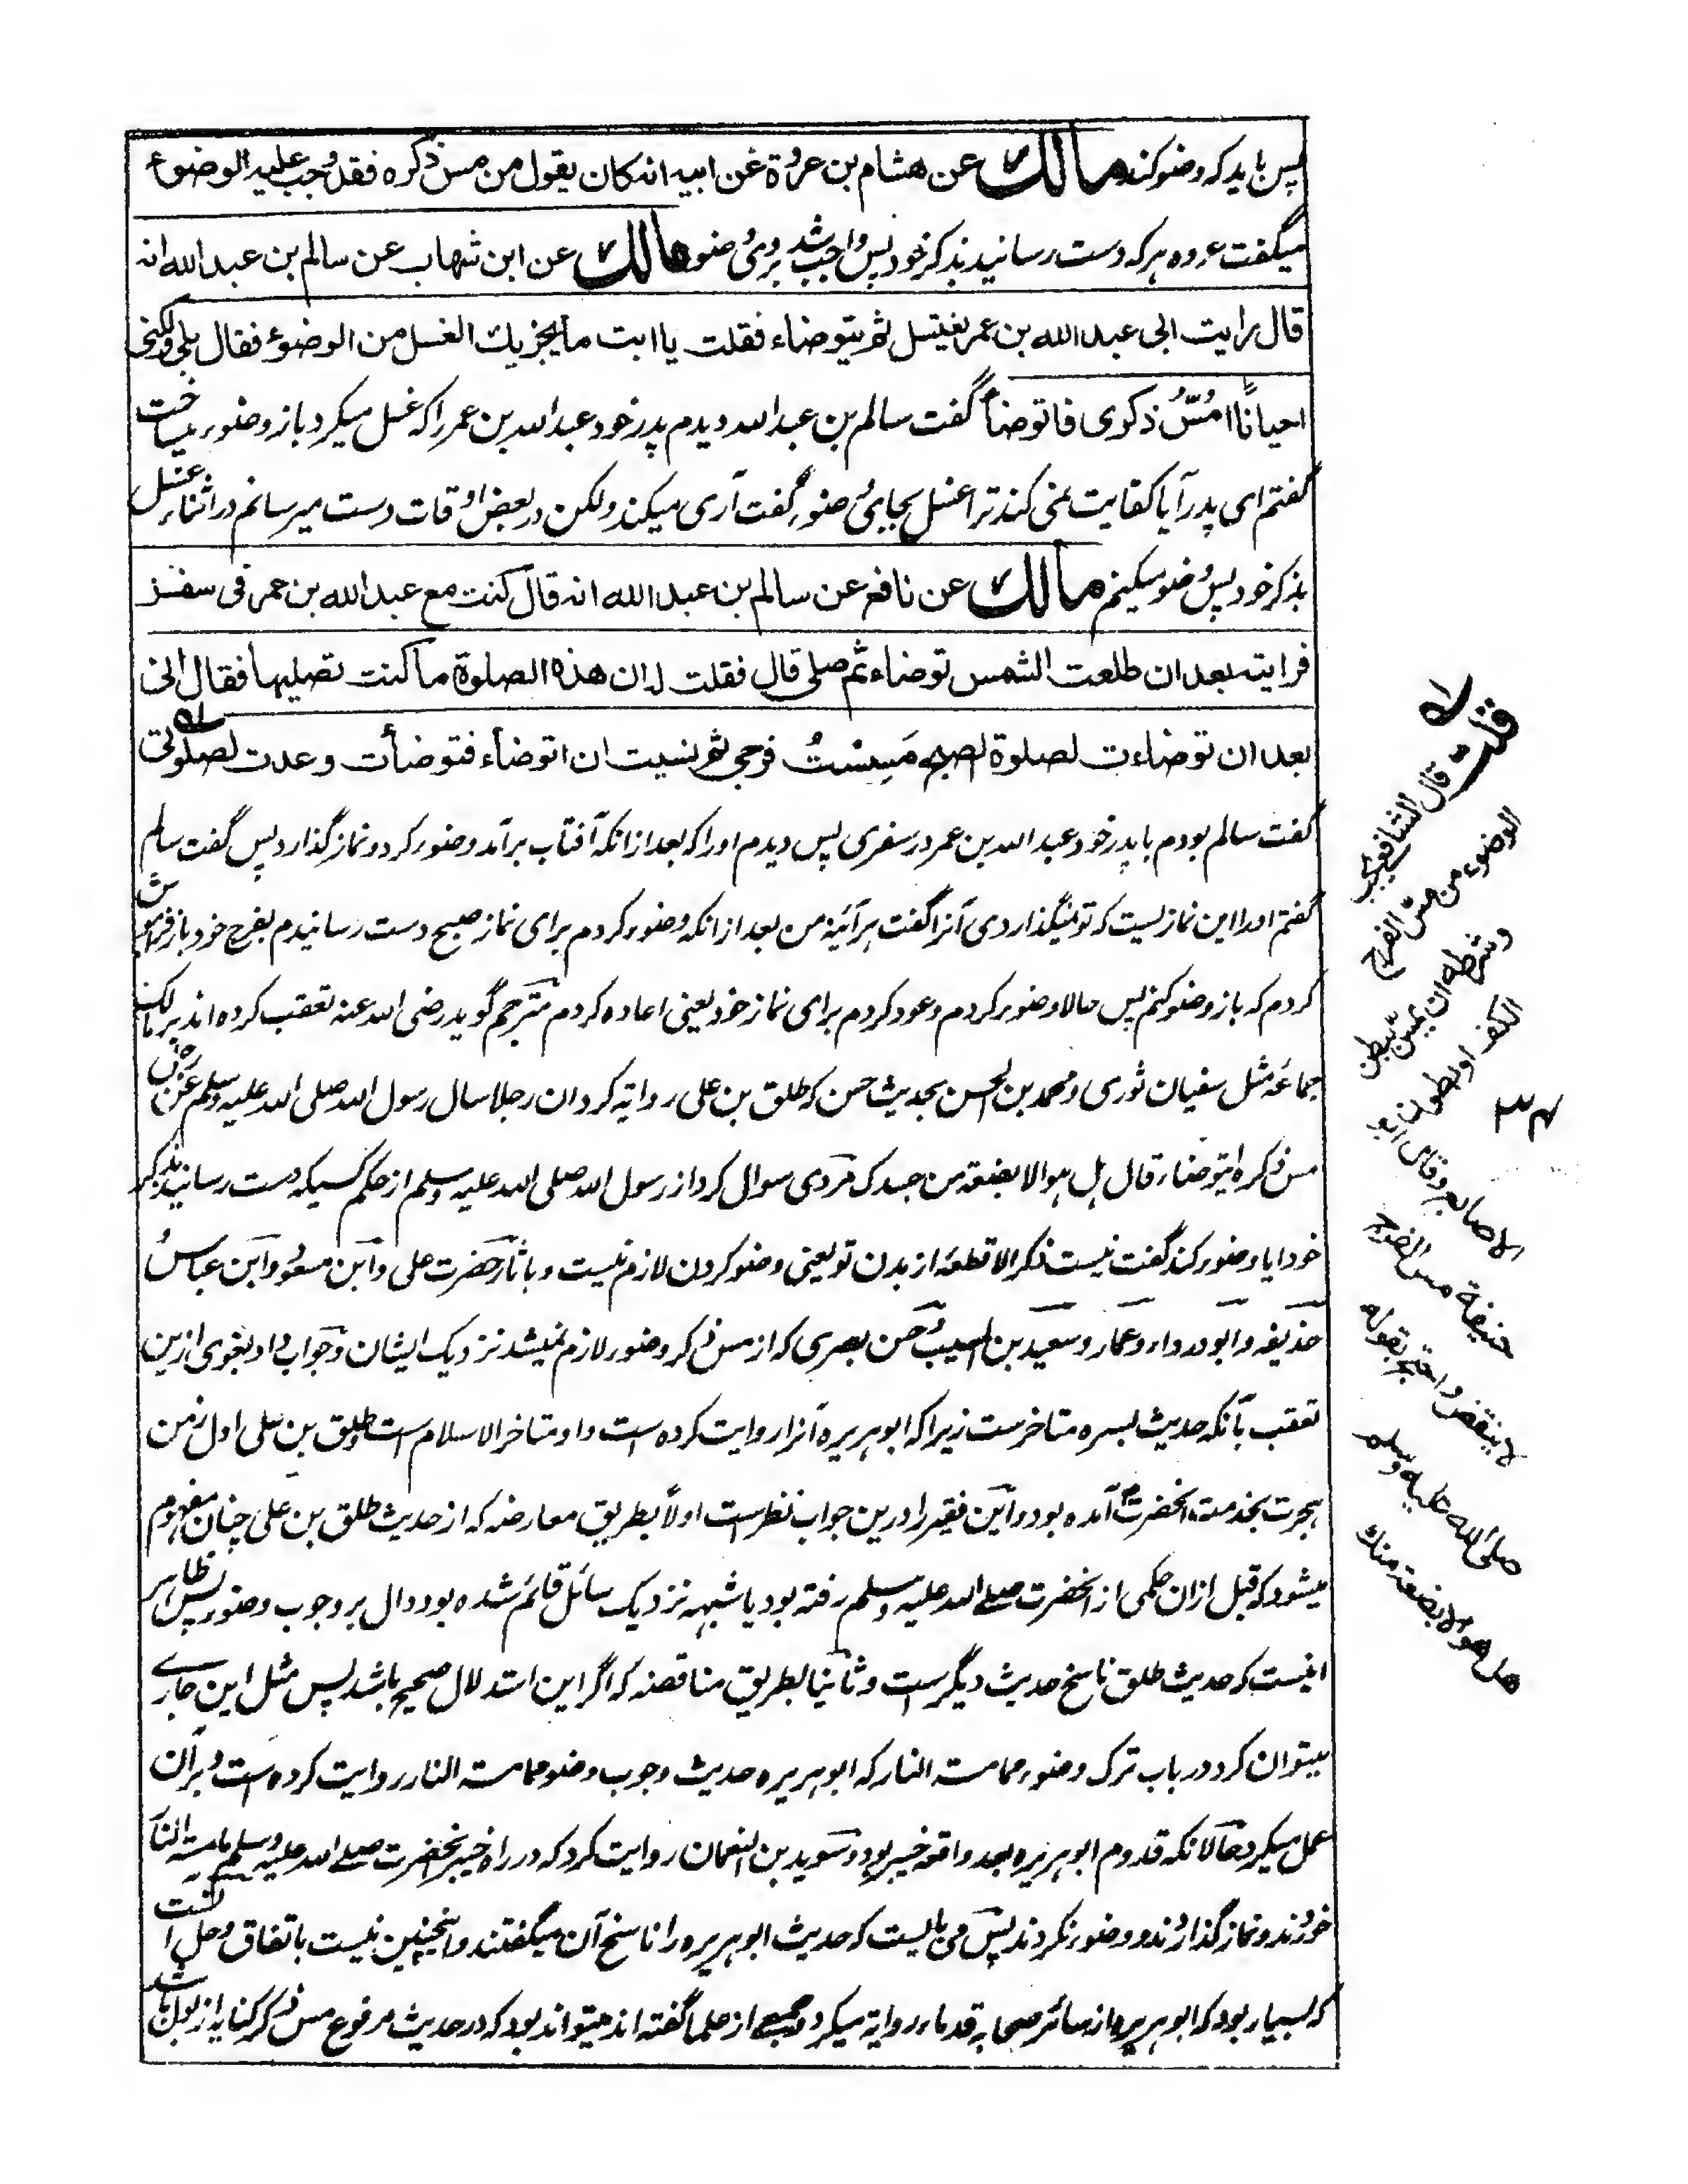 پس باید که وضو کند مالك عن هشام بن عروة عن ابیه انه کان یقول من مس ذکره فقد وجب علیه الوضوء
میگفت عروه هر که دست رسانید بذکر خود پس واجب شد بروی وضو مالك عن ابن شهاب عن سالم بن عبد الله انه
قال رایت ابی عبد الله بن عمر یغتسل ثم یتوضاء فقلت یا ابت ما یجزیك الغسل من الوضوء فقال بلی ولکنی
احیانًا امُسُّ ذکری فاتوضأ گفت سالم بن عبد الله دیدم پدر خود عبد الله بن عمر را که غسل میکرد باز وضوء میساخت
گفتم ای پدر آیا کفایت نمی کند ترا غسل بجای وضوء گفت آری میکند ولکن در بعض اوقات دست میرسانم در اثناء غسل
بذکر خود پس وضو میکنم مالك عن نافع عن سالم بن عبد الله انه قال کنت مع عبد الله بن عمر فی سفر
فرایته بعد ان طلعت الشمس توضاء ثم صلی قال فقلت له ان هذه الصلوة ما کنت تصلیها فقال انی
بعد ان توضاءت لصلوة الصبح مَسِسْتُ فرجی ثم نسیت ان اتوضاء فتوضأت وعدت لصلوتی
گفت سالم بودم با پدر خود عبد الله بن عمر در سفری پس دیدم او را که بعد ازانکه آفتاب برآمد وضوء کرد و نماز گذارد پس گفت سالم
گفتم او را این نماز نیست که تو میگذاردی آنرا گفت هر آئینه من بعد ازانکه وضوء کردم برای نماز صبح دست رسانیدم بفرج خود باز فراموش
کردم که باز وضو کنم پس حالا وضوء کردم و عود کردم برای نماز خود یعنی اعاده کردم مترجم گوید رضی الله عنه تعقب کرده اند بر مالک
جماعه مثل سفیان ثوری و محمد بن الحسن بحدیث حسن که طلق بن علی روایة کرد ان رجلا سال رسول الله صلی الله علیه وسلم عن
مس ذکره ایتوضاء قال هل هو الا بضعة من جسدک مردی سوال کرد از رسول الله صلی الله علیه وسلم از حکم کسیکه دست رسانید بذکر
خود ایا وضوء کند گفت نیست ذکر الا قطعهٔ از بدن تو یعنی وضو کردن لازم نیست و باثار حضرت علی و ابن مسعود و ابن عباس
حذیفه و ابو درداء و عمار و سعید بن المسیب و حسن بصری که از مس ذکر وضوء لازم نمیشد نزدیک ایشان و جواب داد بغوی ازین
تعقب بآنکه حدیث بسره متاخرست زیرا که ابوهریره آنرا روایت کرده است و او متاخر الاسلام است و طلق بن علی اول زمن
هجرت بخدمت آنحضرت آمده بود و این فقیر را درین جواب نظرست اولاً بطریق معارضه که از حدیث طلق بن علی چنان مفهوم
میشود که قبل ازان حکمی از آنحضرت صلی الله علیه وسلم رفته بود یا شبهه نزدیک سائل قائم شده بود دال بر وجوب وضوء پس ظاهر
اینست که حدیث طلق ناسخ حدیث دیگرست و ثانیا بطریق مناقضه که اگر این استدلال صحیح باشد پس مثل این جاری
میتوان کرد در باب ترک وضوء مما مسته النار که ابوهریره حدیث وجوب وضو مما مسته النار روایت کرده است و بر آن
عمل میکرد حالانکه قدوم ابوهریره بعد واقعه خیبر بود و سوید بن النعمان روایت کرد که در راه خیبر آنحضرت صلی الله علیه وسلم ما مسته النار
خوردند و نماز گذاردند و وضوء نکردند پس می بایست که حدیث ابوهریره را ناسخ آن میگفتند و اینچنین نیست باتفاق و حل آنست
که بسیار بود که ابوهریره از سائر صحابه قدماء روایة میکرد و جمعی از علما گفته اند میتواند بود که در حدیث مرفوع مس ذکر کنایه از بول باشد
له قلت
قال الشافعی یجب
الوضوء من مس الفرج
وشرطه ان یمس ببطن
الکف او بطون
الاصابع وقال ابو
حنیفة مس الفرج
لا ینقض واحتج بقوله
صلی الله علیه وسلم
هل هو الا بضعة منك
۳۴